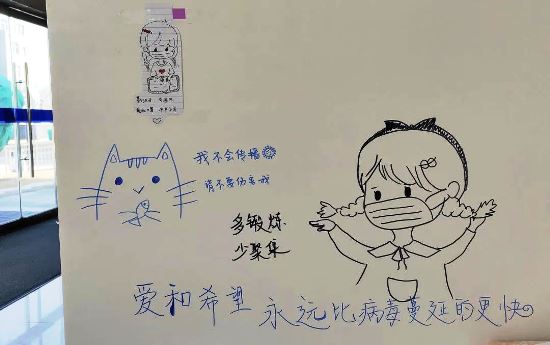 我不会传播
请不要伤害我
多锻炼
少聚集
爱和希望 永远比病毒蔓延的更快